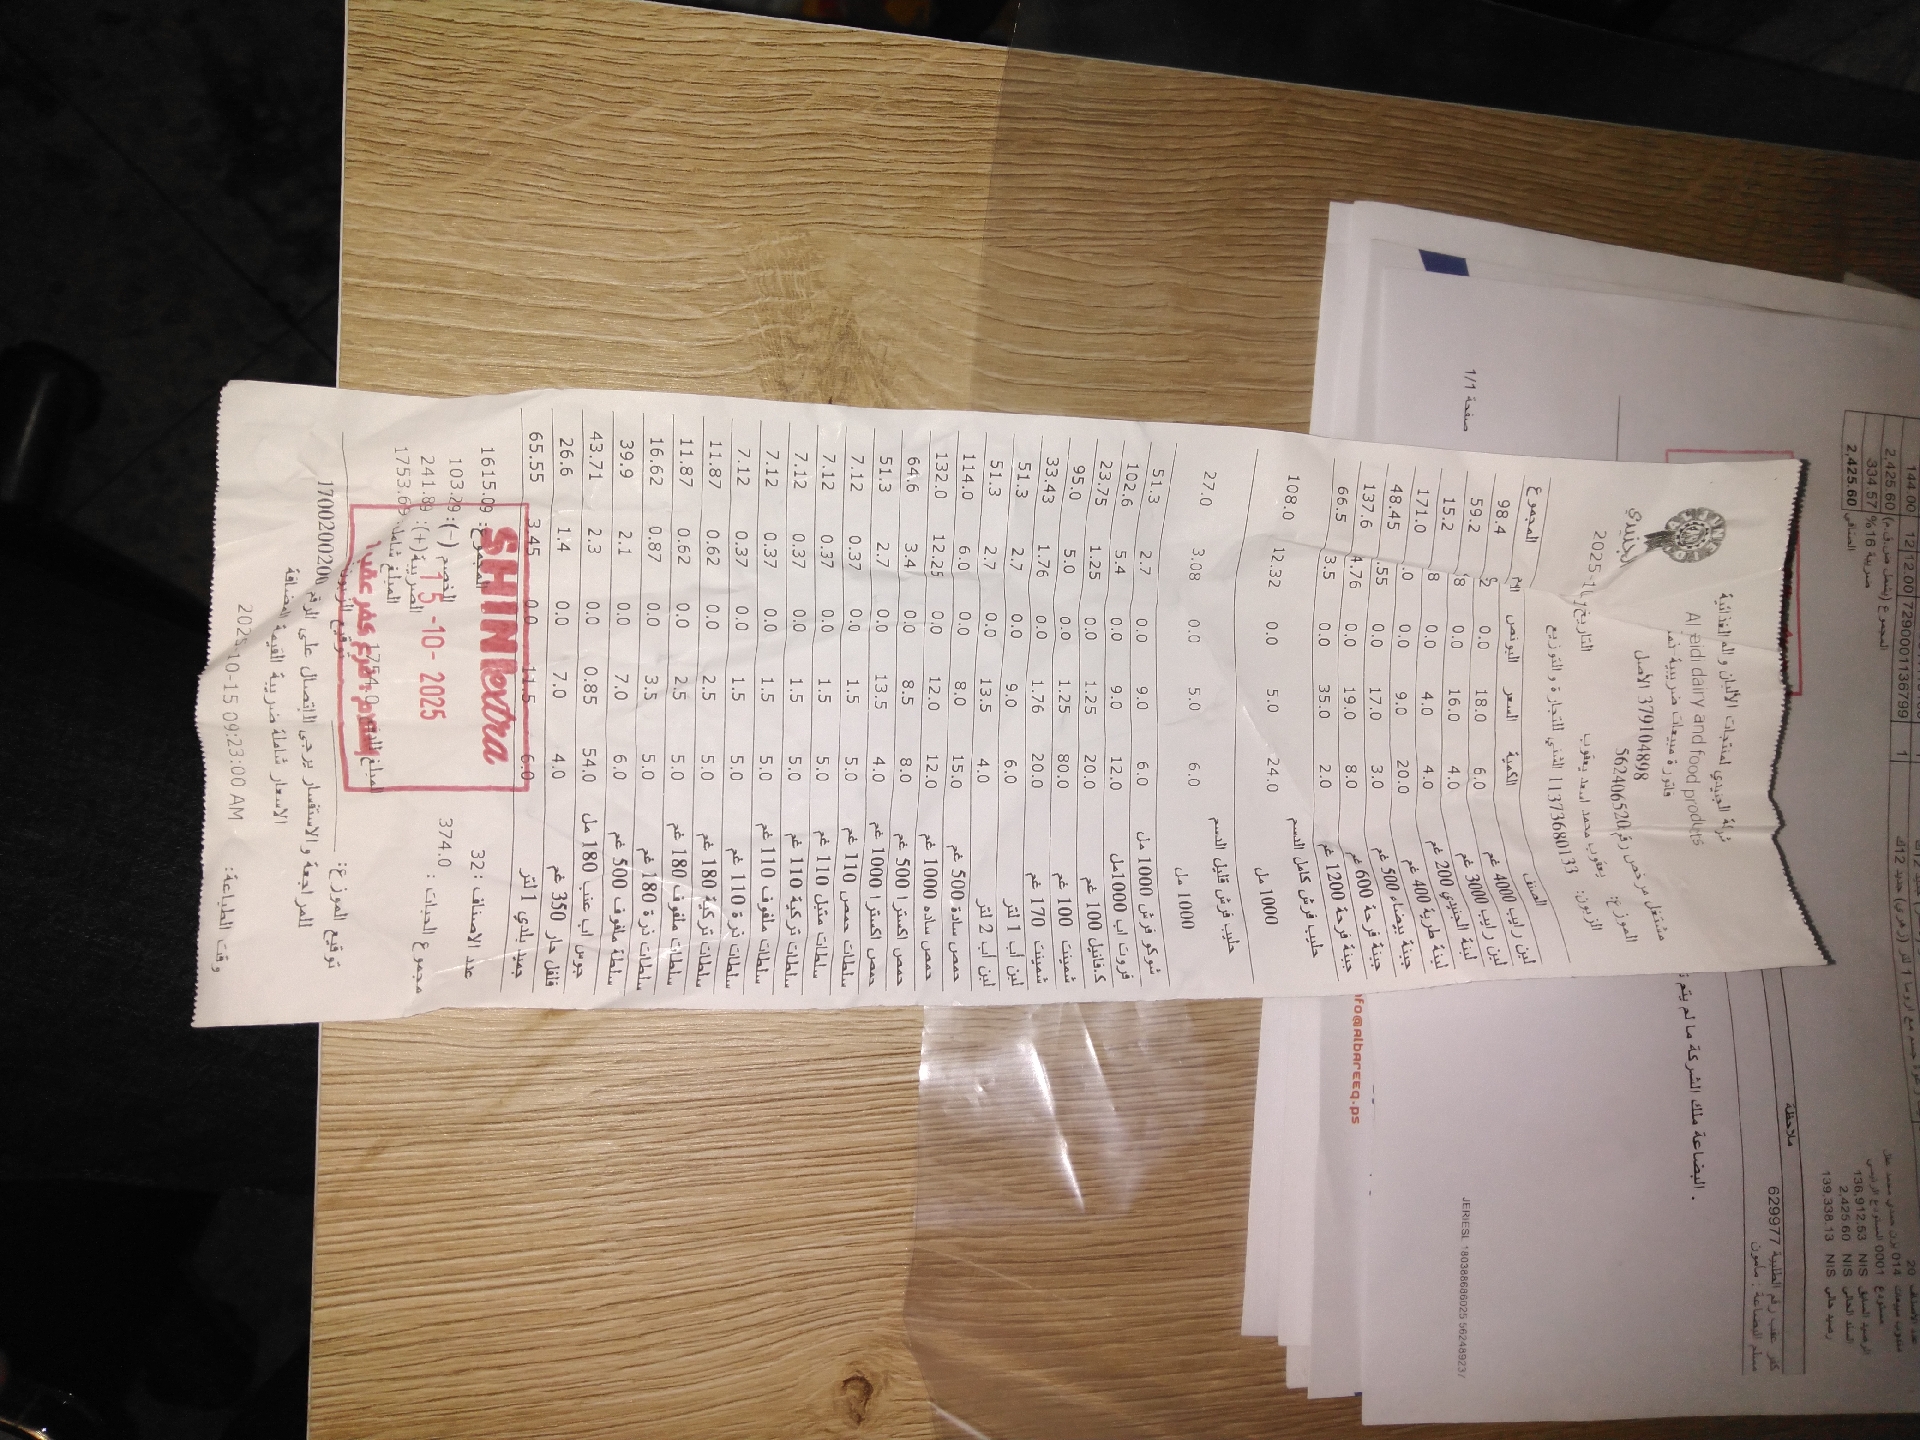 شركة الجنيدي لمنتجات الألبان والمواد الغذائية
Al jneidi dairy and food prodcts
فاتورة مبيعات ضريبية
379104898 الأصل
مشتغل مرخص رقم 562406520
الموزع: يعقوب محمد اسعد يعقوب
الزبون: 1137368013 الشني للتجارة و التوزيع
الجنيدي
الصنف الكمية السعر البونص المجموع
لبن رايب 4000 غم 6.0 18.0 0.0 98.4
لبن رايب 3000 غم 4.0 16.0 0.0 59.2
لبنة الجنيدي 200 غم 4.0 4.0 0.0 15.2
لبنة طرية 400 غم 20.0 9.0 0.0 171.0
جبنة بيضاء 500 غم 3.0 17.0 0.0 48.45
جبنة فرحة 600 غم 8.0 19.0 0.0 137.6
جبنة فرحة 1200 غم 2.0 35.0 0.0 3.5 66.5
حليب فرش كامل الدسم
1000 مل 24.0 5.0 0.0 12.32 108.0
حليب فرش قليل الدسم
1000 مل 6.0 5.0 0.0 3.08 27.0
شوكو فرش 1000 مل 6.0 9.0 0.0 2.7 51.3
فروت اب 1000مل 12.0 9.0 0.0 5.4 102.6
ك.فانيل 100 غم 20.0 1.25 0.0 1.25 23.75
شمينت 100 غم 80.0 1.25 0.0 5.0 95.0
شمينت 170 غم 20.0 1.76 0.0 1.76 33.43
لبن اب 1 لتر 6.0 9.0 0.0 2.7 51.3
لبن أب 2 لتر 4.0 13.5 0.0 2.7 51.3
حمص سادة 500 غم 15.0 8.0 0.0 6.0 114.0
حمص ساده 1000 غم 12.0 12.0 0.0 12.25 132.0
حمص اكسترا 500 غم 8.0 8.5 0.0 3.4 64.6
حمص اكسترا 1000 غم 4.0 13.5 0.0 2.7 51.3
سلطات حمص 110 غم 5.0 1.5 0.0 0.37 7.12
سلطات متبل 110 غم 5.0 1.5 0.0 0.37 7.12
سلطات تركية 110 غم 5.0 1.5 0.0 0.37 7.12
سلطات ملفوف 110 غم 5.0 1.5 0.0 0.37 7.12
سلطات ذرة 110 غم 5.0 1.5 0.0 0.37 7.12
سلطات تركية 180 غم 5.0 2.5 0.0 0.62 11.87
سلطات ملفوف 180 غم 5.0 2.5 0.0 0.62 11.87
سلطات ذرة 180 غم 5.0 3.5 0.0 0.87 16.62
سلطة ملفوف 500 غم 6.0 7.0 0.0 2.1 39.9
جوس اب عنب 180 مل 54.0 0.85 0.0 2.3 43.71
فلفل حار 350 غم 4.0 7.0 0.0 1.4 26.6
جميد بلدي 1 لتر 6.0 11.5 0.0 3.45 65.55
عدد الاصناف : 32 المجموع: 1615.09
مجموع الحبات : 374.0 الخصم (-): 103.29
الضريبة(+): 241.89
المبلغ شامل: 1753.69
SHINI extra
15 -10- 2025
توقيع الموزع: توقيع الزبون:
للمراجعة و الاستفسار يرجى الاتصال على الرقم 1700200200
الاسعار شاملة ضريبة القيمة المضافة
وقت الطباعة: 2025-10-15 09:23:00 AM
صفحة 1/1
البضاعة ملك الشركة ما لم يتم
info@albareeq.ps
ملاحظة
629977
2,425.60
334.57
2,425.60
7290001136799
136,912.53 NIS
2,425.60 NIS
139,338.13 NIS